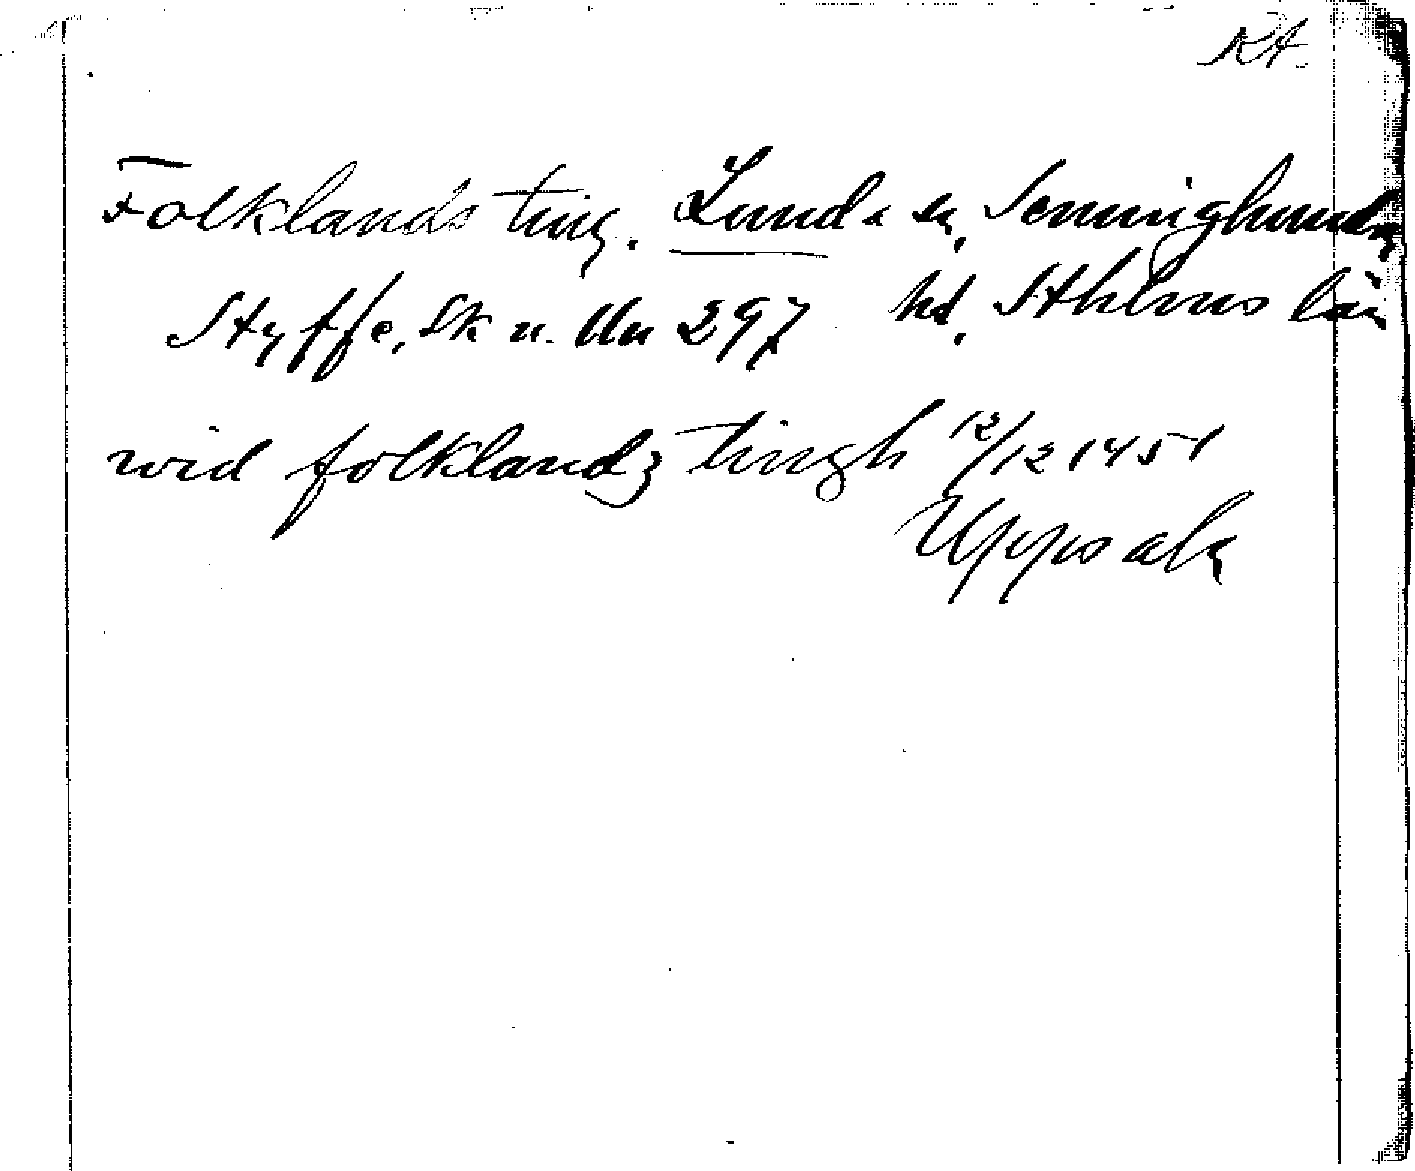 RA.
Folklands ting. Lunda sn, Seminghundra
Styffe, Sk u. Un 297 hd, Sthlms län
wid folklandz tingh 12/12 1451
Uppsala